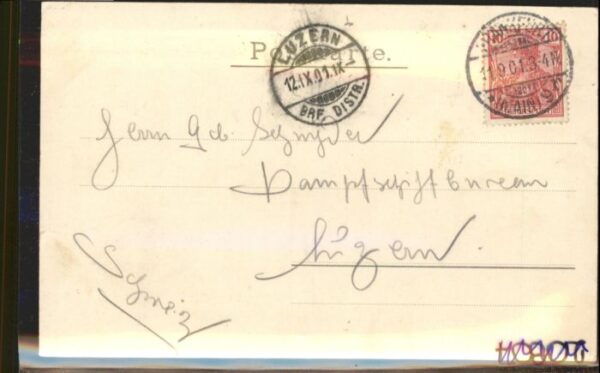 Postkarte.
LUZERN 1
12.IX.01.IX
BRF. DISTR.
10
11.9.01.3-4N
(MAIN)
Herrn Geb. Schnyder
Dampfschiffbureau
Luzern
Schweiz